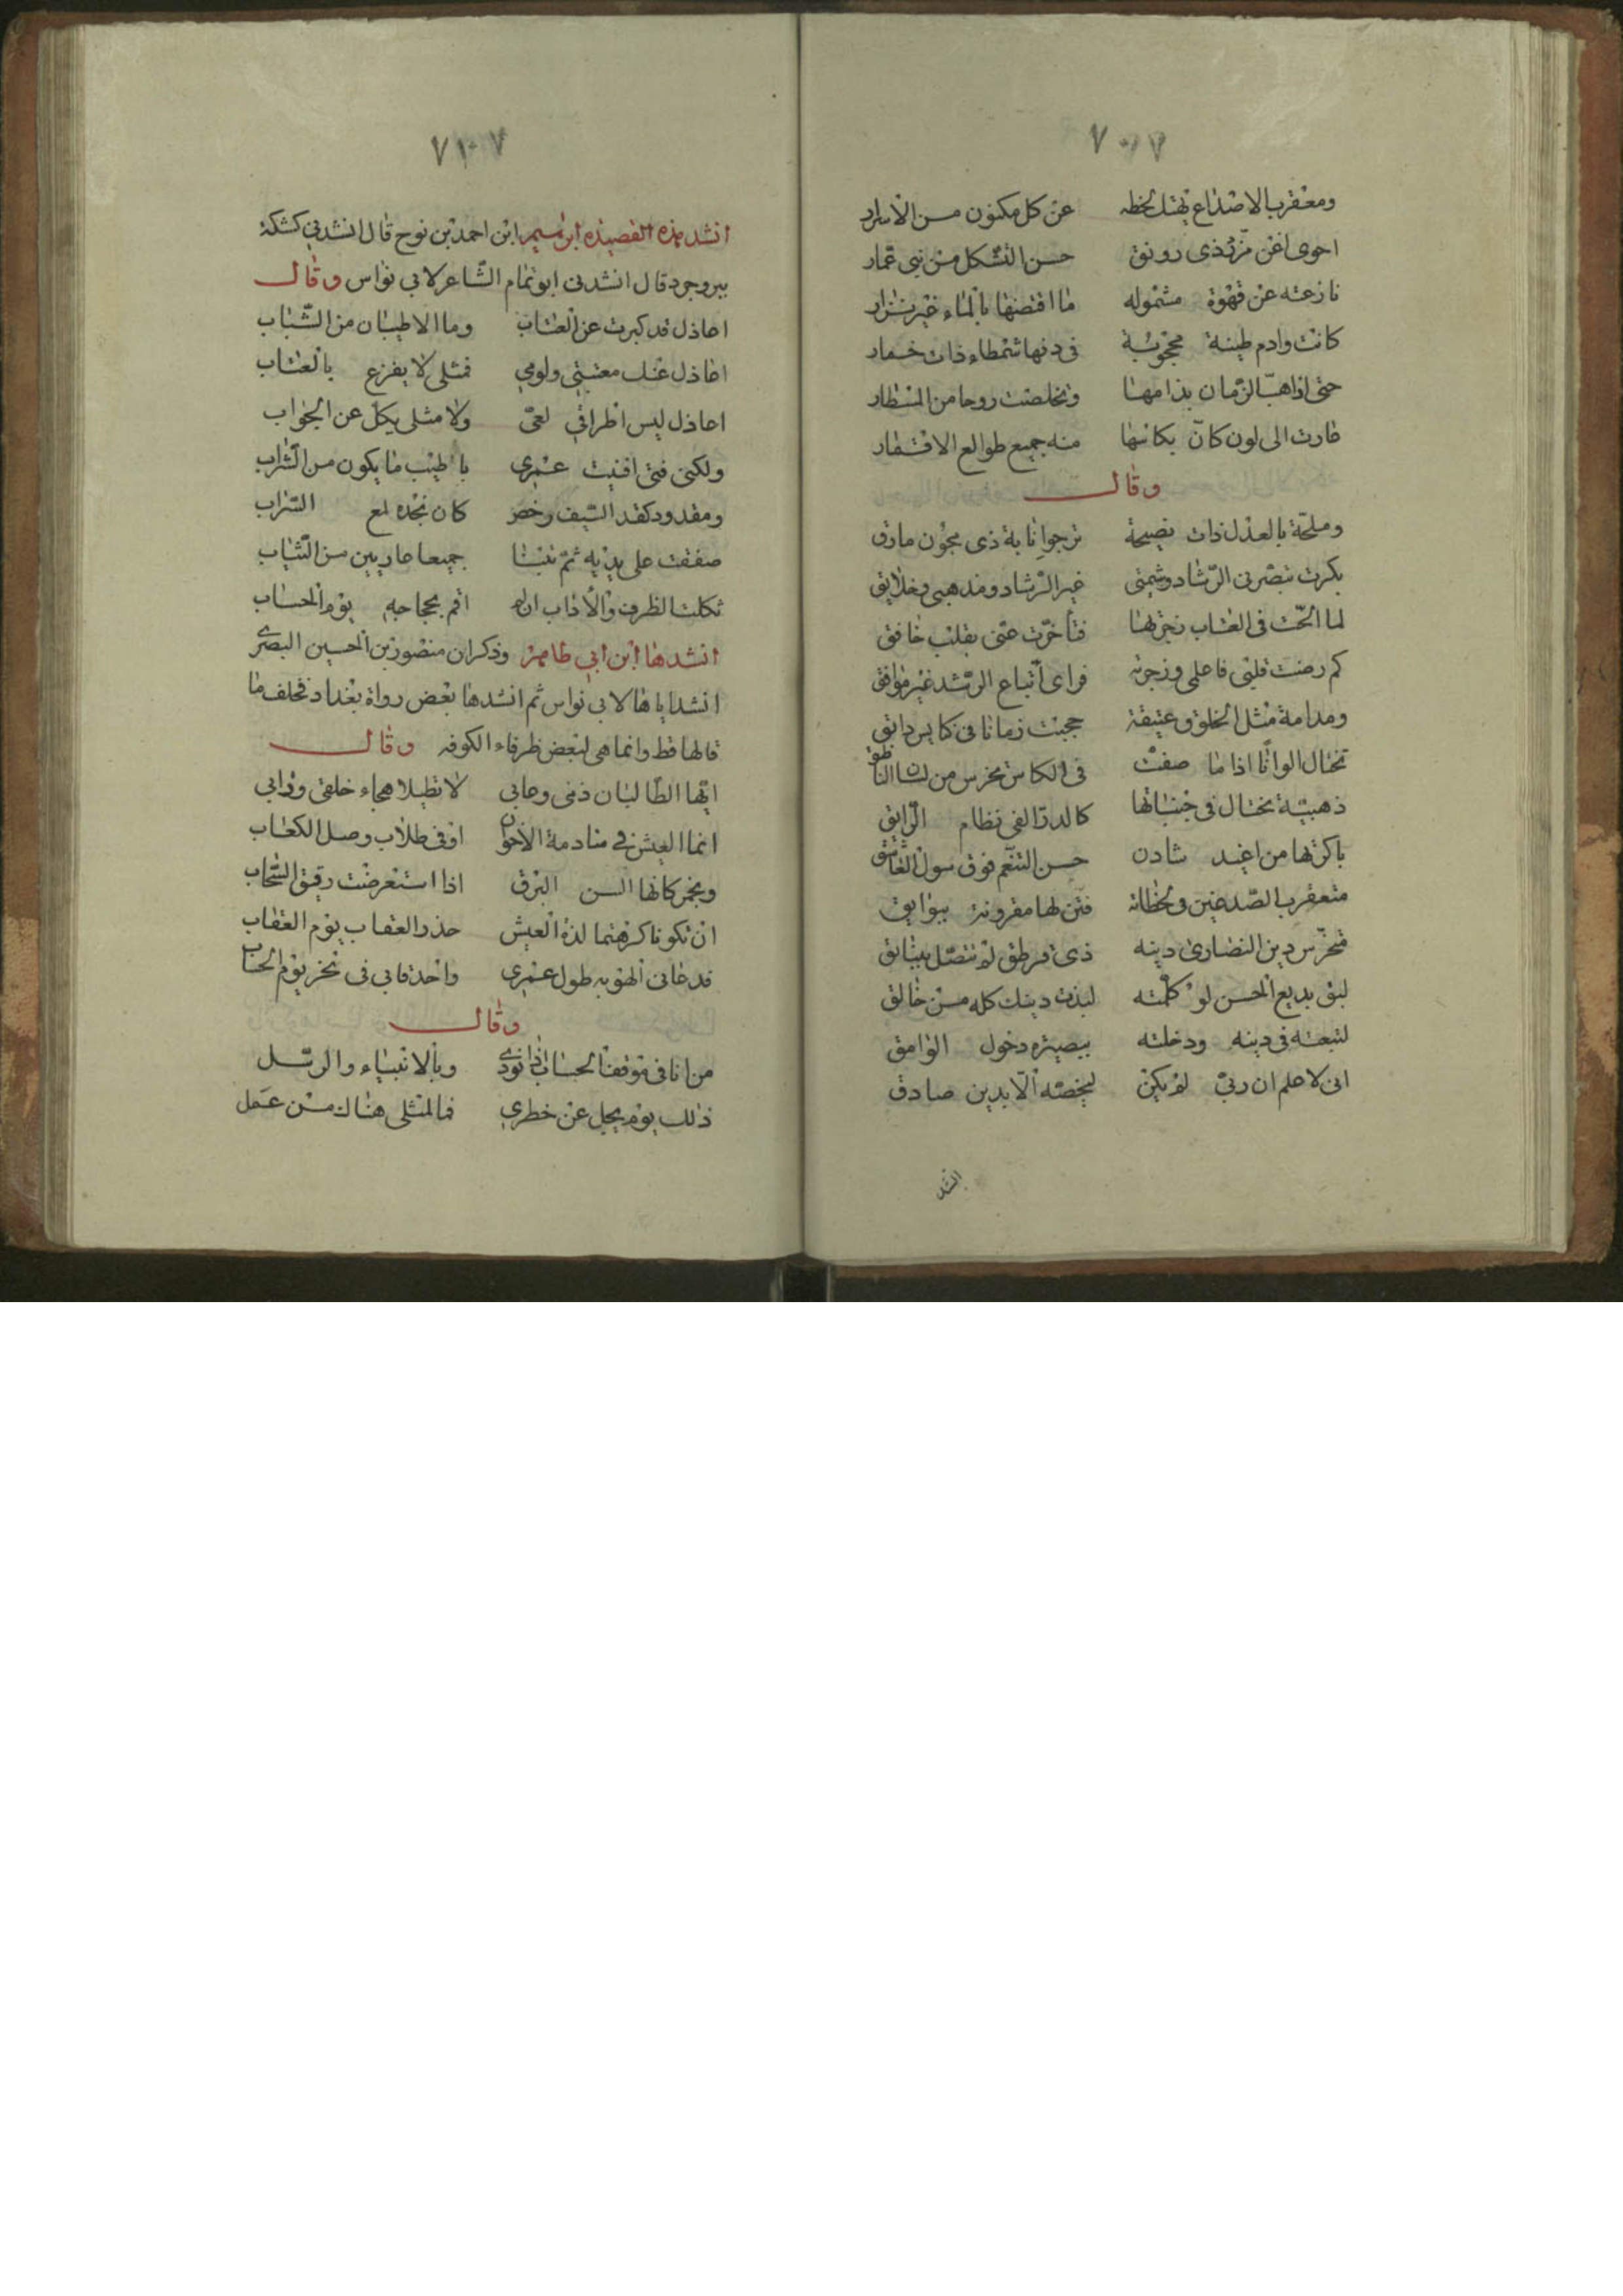 ٧٠٧
ومعقرب الاصداع يهتك لحظه عن كل مكنون من الاسرار
احوى اغن مزنر ذى رونق حسن التشكل من بنى عمار
نازعته عن قهوة مشموله ما افتضها بالماء غير نزار
كانت وادم طينة محجوبة فى دنها شمطاء ذات خمار
حتى اذا هبّ الزمان بذا مها وتخلصت روحا من
طارت الى لون كانّ بكانها منه جميع طوالع الاقمار
وقال
وملحّة بالعذل ذات نصيحة ترجو انابة ذى مجون مارق
بكرت تبصرنى الرّشاد وشيمتى غير الرّشاد ومذهبى وخلايق
لما الحّت فى العتاب زجرتها فتأخرت عنى بقلب خافق
كم رضت قلبى فاعلمى وزجرته فراى اتّباع الرّشد غير موافق
ومدامة مثل الخلوق عتيقة حجبت زمانا فى دانق
تختال الوانًا اذا ما صفت فى الكاس تخرس من لسان الناطق
ذهبيّة تختال فى جنباتها كالدرّ الف فى نظام الرّايق
باكرتها من اغيد شادن حسن التنعّم فوق سول العاشق
متعقرب الصّدغين فى لحظاته فتن لها مقرونة ببوايق
متخرّس دين النصارى دينه ذى قرطق لم تتصل ببنائق
لبق بديع الحسن لو كلّمته لنبذت دينك كله من خالق
لتبعته فى دينه ودخلته ببصيرة دخول الوامق
انى لاعلم ان ربّى لم يكن ليخصّه الّا بدين صادق
انشد
٧١٠٧
انشد هذه القصيده ابن احمد بن نوح قال انشدنى كشكة
ببروجرد قال انشدنى ابو تمام الشّاعر لابى نواس وقال
اعاذل قد كبرت عن العتاب وما الاطيبان من الشّباب
اعاذل عنك معتبتى ولومى فمثلى لا يفزع بالعتاب
اعاذل ليس اطراقى لعىّ ولا مثلى يكلّ عن الجواب
ولكنى فتى افنيت عمرى باطيب ما يكون من الشّراب
ومقدود كقد السّيف رخص كان بخده لمع السّراب
صففت على يديه ثمّ بتنا جميعا عاريين من الثّياب
ثكلت الظرف والآداب ان لم اقم بحجاجه يوم الحساب
انشدها ابن ابى طاهر وذكر ان منصور بن الحسين البصرى
انشد اياها لابى نواس ثم انشدها بعض رواة بغداد فحلف ما
قالها قط وانما هى لبعض ظرفاء الكوفه وقال
ايّها الطّالبان ذمّى وعابى لا تطيلا هجاء خلقى ودابى
انما العيش فى منادمة الاخوان او فى طلاب وصل الكعاب
وبخمر كانها السن البرق اذا استعرضت رقيق السّحاب
ان تكونا كرهتما لذة العيش حذر العقاب يوم العقاب
فدعانى الهو به طول عمرى واحدقا بى فى يوم الحساب
وقال
من انا فى موقف الحساب اذا نودى وبالانبياء والرسل
ذلك يوم يجل عن خطرى فما لمثلى هناك من عمل